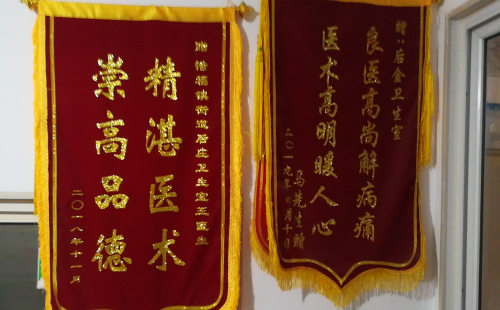 赠:洁福镇街道后庄卫生室王医生
精湛医术
崇高品德
二〇一八年十一月
赠:后金卫生室
良医高尚解病痛
医术高明暖人心
马先生赠
二〇一九年四月十日